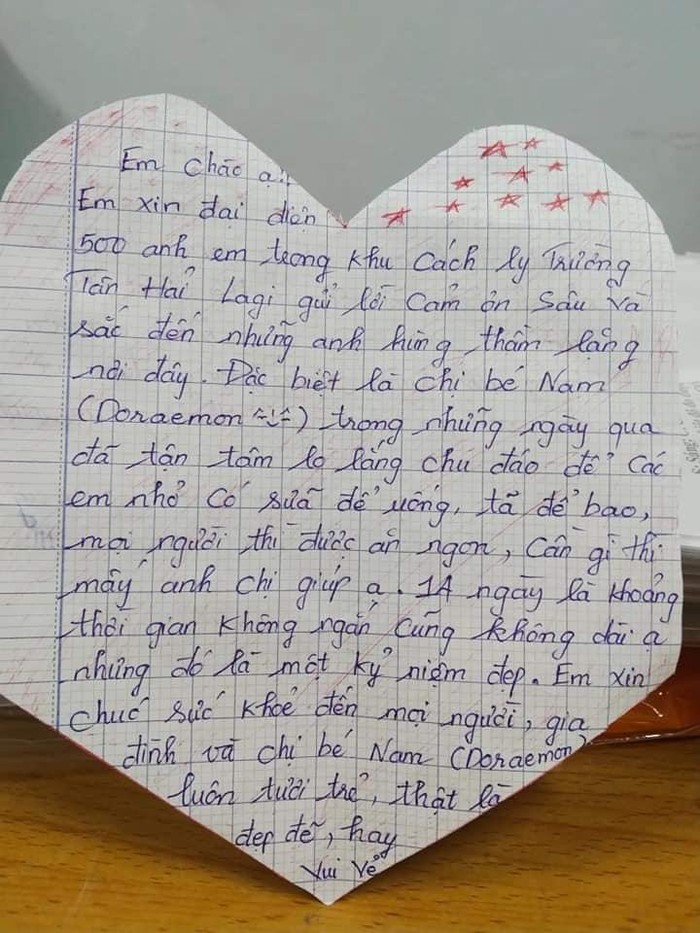 Em chào ạ!!
Em xin đại diện
500 anh em trong khu cách ly Trường
Tân Hải Lagi gửi lời cảm ơn sâu và
sắc đến những anh hùng thầm lặng
nơi đây. Đặc biệt là chị bé Nam
(Doraemon) trong những ngày qua
đã tận tâm lo lắng chu đáo để các
em nhỏ có sữa để uống, tã để bao,
mọi người thì được ăn ngon, cần gì thì
mấy anh chị giúp ạ. 14 ngày là khoảng
thời gian không ngắn cũng không dài ạ
nhưng đó là một kỷ niệm đẹp. Em xin
chúc sức khoẻ đến mọi người, gia
đình và chị bé Nam (Doraemon)
luôn tươi trẻ, thật là
đẹp đẽ, hay
vui vẻ